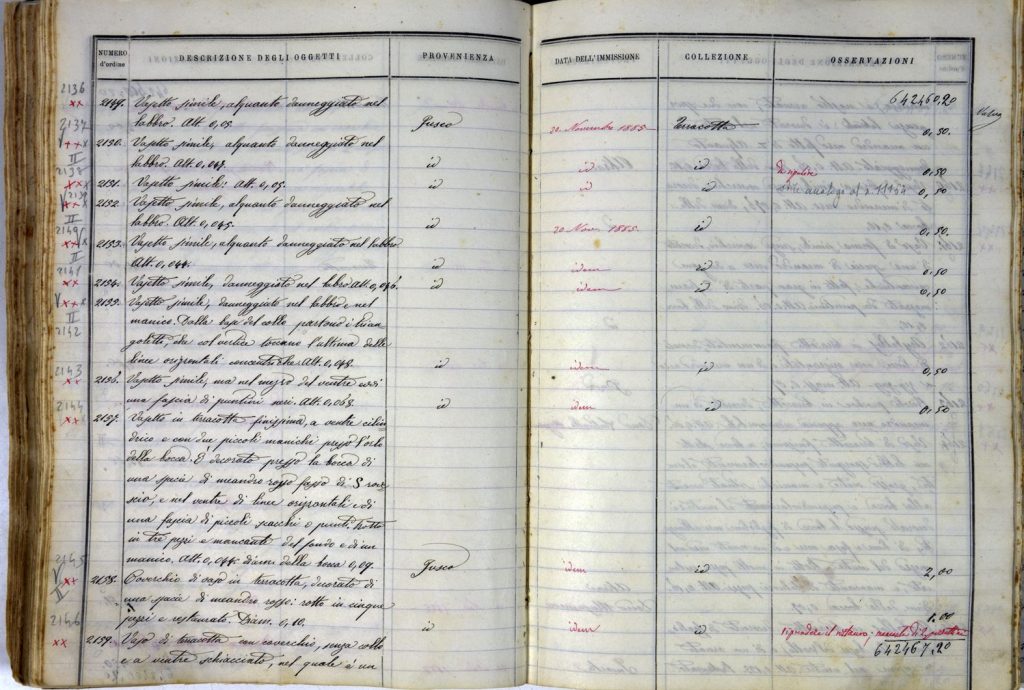 NUMERO
d'ordine
DESCRIZIONE DEGLI OGGETTI
PROVENIENZA
DATA DELL'IMMISSIONE
COLLEZIONE
OSSERVAZIONI
642460,20
Valore
2136
2149. Vasetto simile, alquanto danneggiato nel
labbro. Alt. 0,05. Cuseo 20 Novembre 1885 Terracotta 0,50.
2137
2150. Vasetto simile, alquanto danneggiato nel
labbro. Alt. 0,047. id id id 0,50
II
2138
2151. Vasetto simile. Alt. 0,05. id id id 0,50
2139
2152. Vasetto simile, alquanto danneggiato nel
labbro. Alt. 0,045. id 20 Nov. 1885. id 0,50.
II
2140
2153. Vasetto simile, alquanto danneggiato nel labbro
Alt. 0,044. id idem id 0,50
II
2141
2154. Vasetto simile, danneggiato nel labbro Alt. 0,046. id idem id 0,50
2155. Vasetto simile, danneggiato nel labbro e nel
manico. Dalla base del collo partono i trian
goletti, che col vertice toccano l'ultima delle
linee orizzontali concentriche. Alt. 0,048. id idem id 0,50
II
2142
2143
2156. Vasetto simile, ma nel mezzo del ventre evvi
una fascia di puntini neri. Alt. 0,063. id idem id 0,50
2144
2157. Vasetto in terracotta finissima, a ventre cilin
drico e con due piccoli manichi presso l'orlo
della bocca. È decorato presso la bocca di
una specie di meandro rosso fasso di S rove
scio, e nel ventre di linee orizzontali e di
una fascia di piccoli scacchi e punti. Rotto
in tre pezzi e mancante del fondo e di un
manico. Alt. 0,044. diam. della bocca 0,09. Cuseo idem id 2,00
2145
2158. Coverchio di vaso in terracotta, decorato di
una specie di meandro rosso: rotto in cinque
pezzi e restaurato. Diam. 0,10. id idem id 1.00
II
2146
642467,20
2159. Vaso di terracotta con coverchio, senza collo
e a ventre schiacciato, nel quale è un